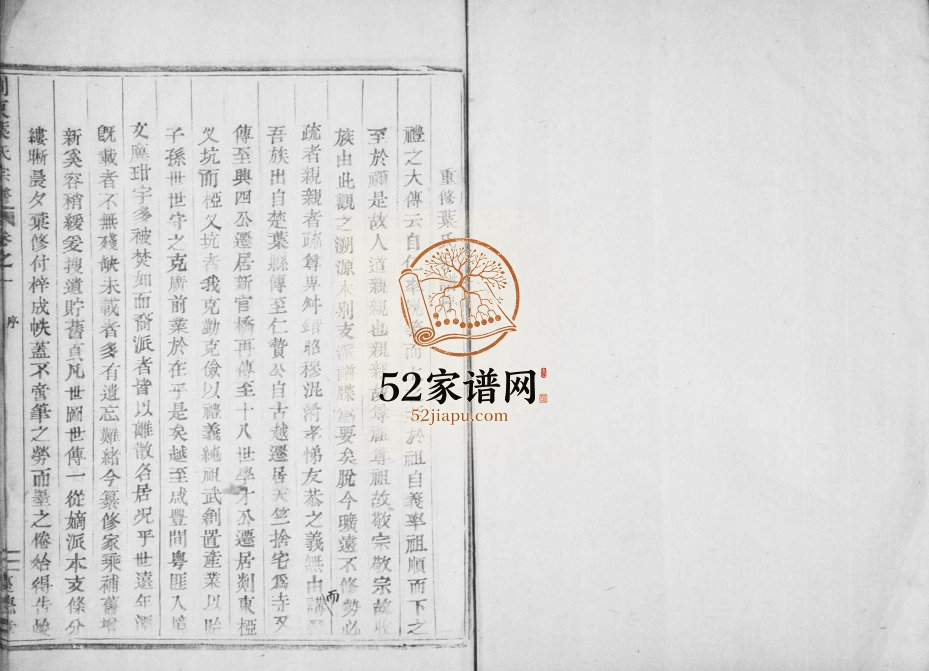 重修葉氏
禮之大傳云自仁率親 而 於祖自義率祖順而下之
至於禰是故人道親親也親親故尊祖尊祖故敬宗敬宗故收
族由此觀之溯源未別支派譜牒爲要矣脫今曠遠不修勢必
疏者親親者疏尊卑舛錯昭穆混淆孝悌友恭之義無由講
而
吾族出自楚葉縣傳至仁贊公自古越遷居天竺捨宅爲寺又
傳至興四公遷居新官橋再傳至十八世學才公遷居剡東極
义坑而極义坑者我克勤克儉以禮義純祖武創置產業以貽
子孫世世守之克廣前業於在乎是矣越至咸豐間粵匪入境
文廟 宇多被焚如而裔派者皆以離散各居况乎世遠年湮
既載者不無殘缺未載者多有遺忘難緒今纂修家乘補舊增
新奚容稍緩爰搜遺貯舊貞凡世圖世傳一從嫡派本支條分
縷晰晨夕彙修付梓成帙蓋不啻筆之勞而墨之倦始得告竣
剡東葉氏宗譜
卷之一
序
一
52家谱网
52jiapu.com